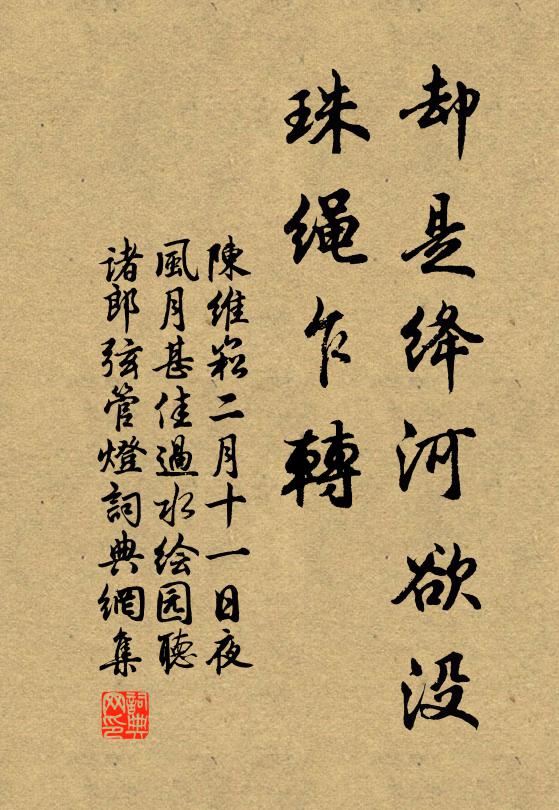 却是绛河欲没
珠绳乍轉
陳维崧二月十一日夜
風月甚佳過水绘园聽
诸郎弦管燈詞典網集
詞典
网印